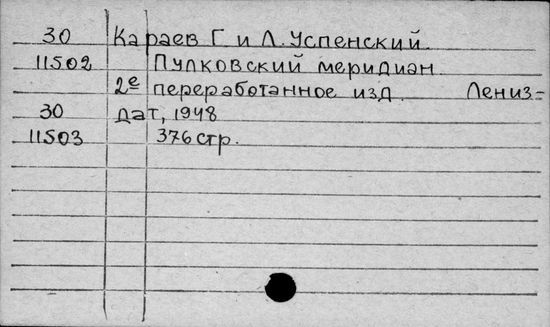 30 Караев Г. и Л. Успенский.
11502 Пулковский меридиан.
2е переработанное изд. Лениз-
30 дат, 1948
11503 376 стр.